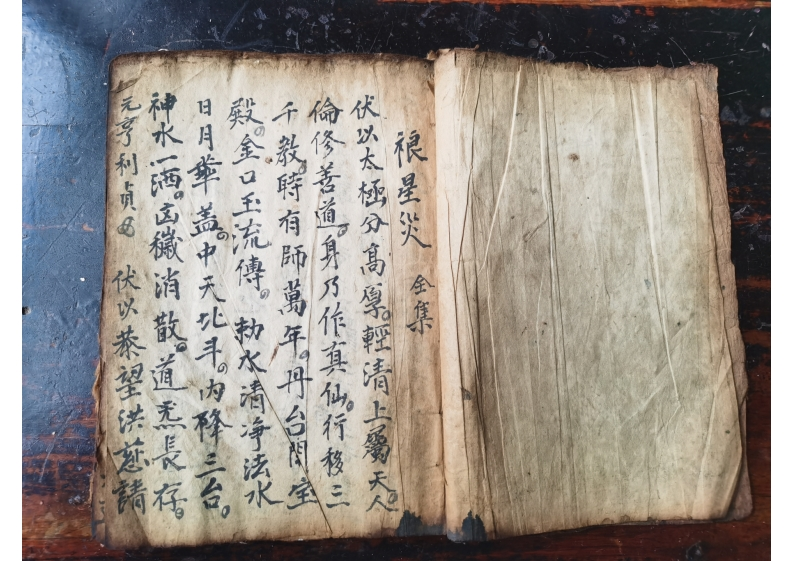 星災 全集
伏以太極分高厚。輕清上屬天。人
倫修善道。身乃作真仙。行移三
千教。時有師萬年。丹台開宝
殿。金口玉流傳。勅水清净法水
日月華盖。中天北斗。内降三台。
神水一洒。凶穢消散。道炁長存。
元亨利貞 伏以恭望洪慈請